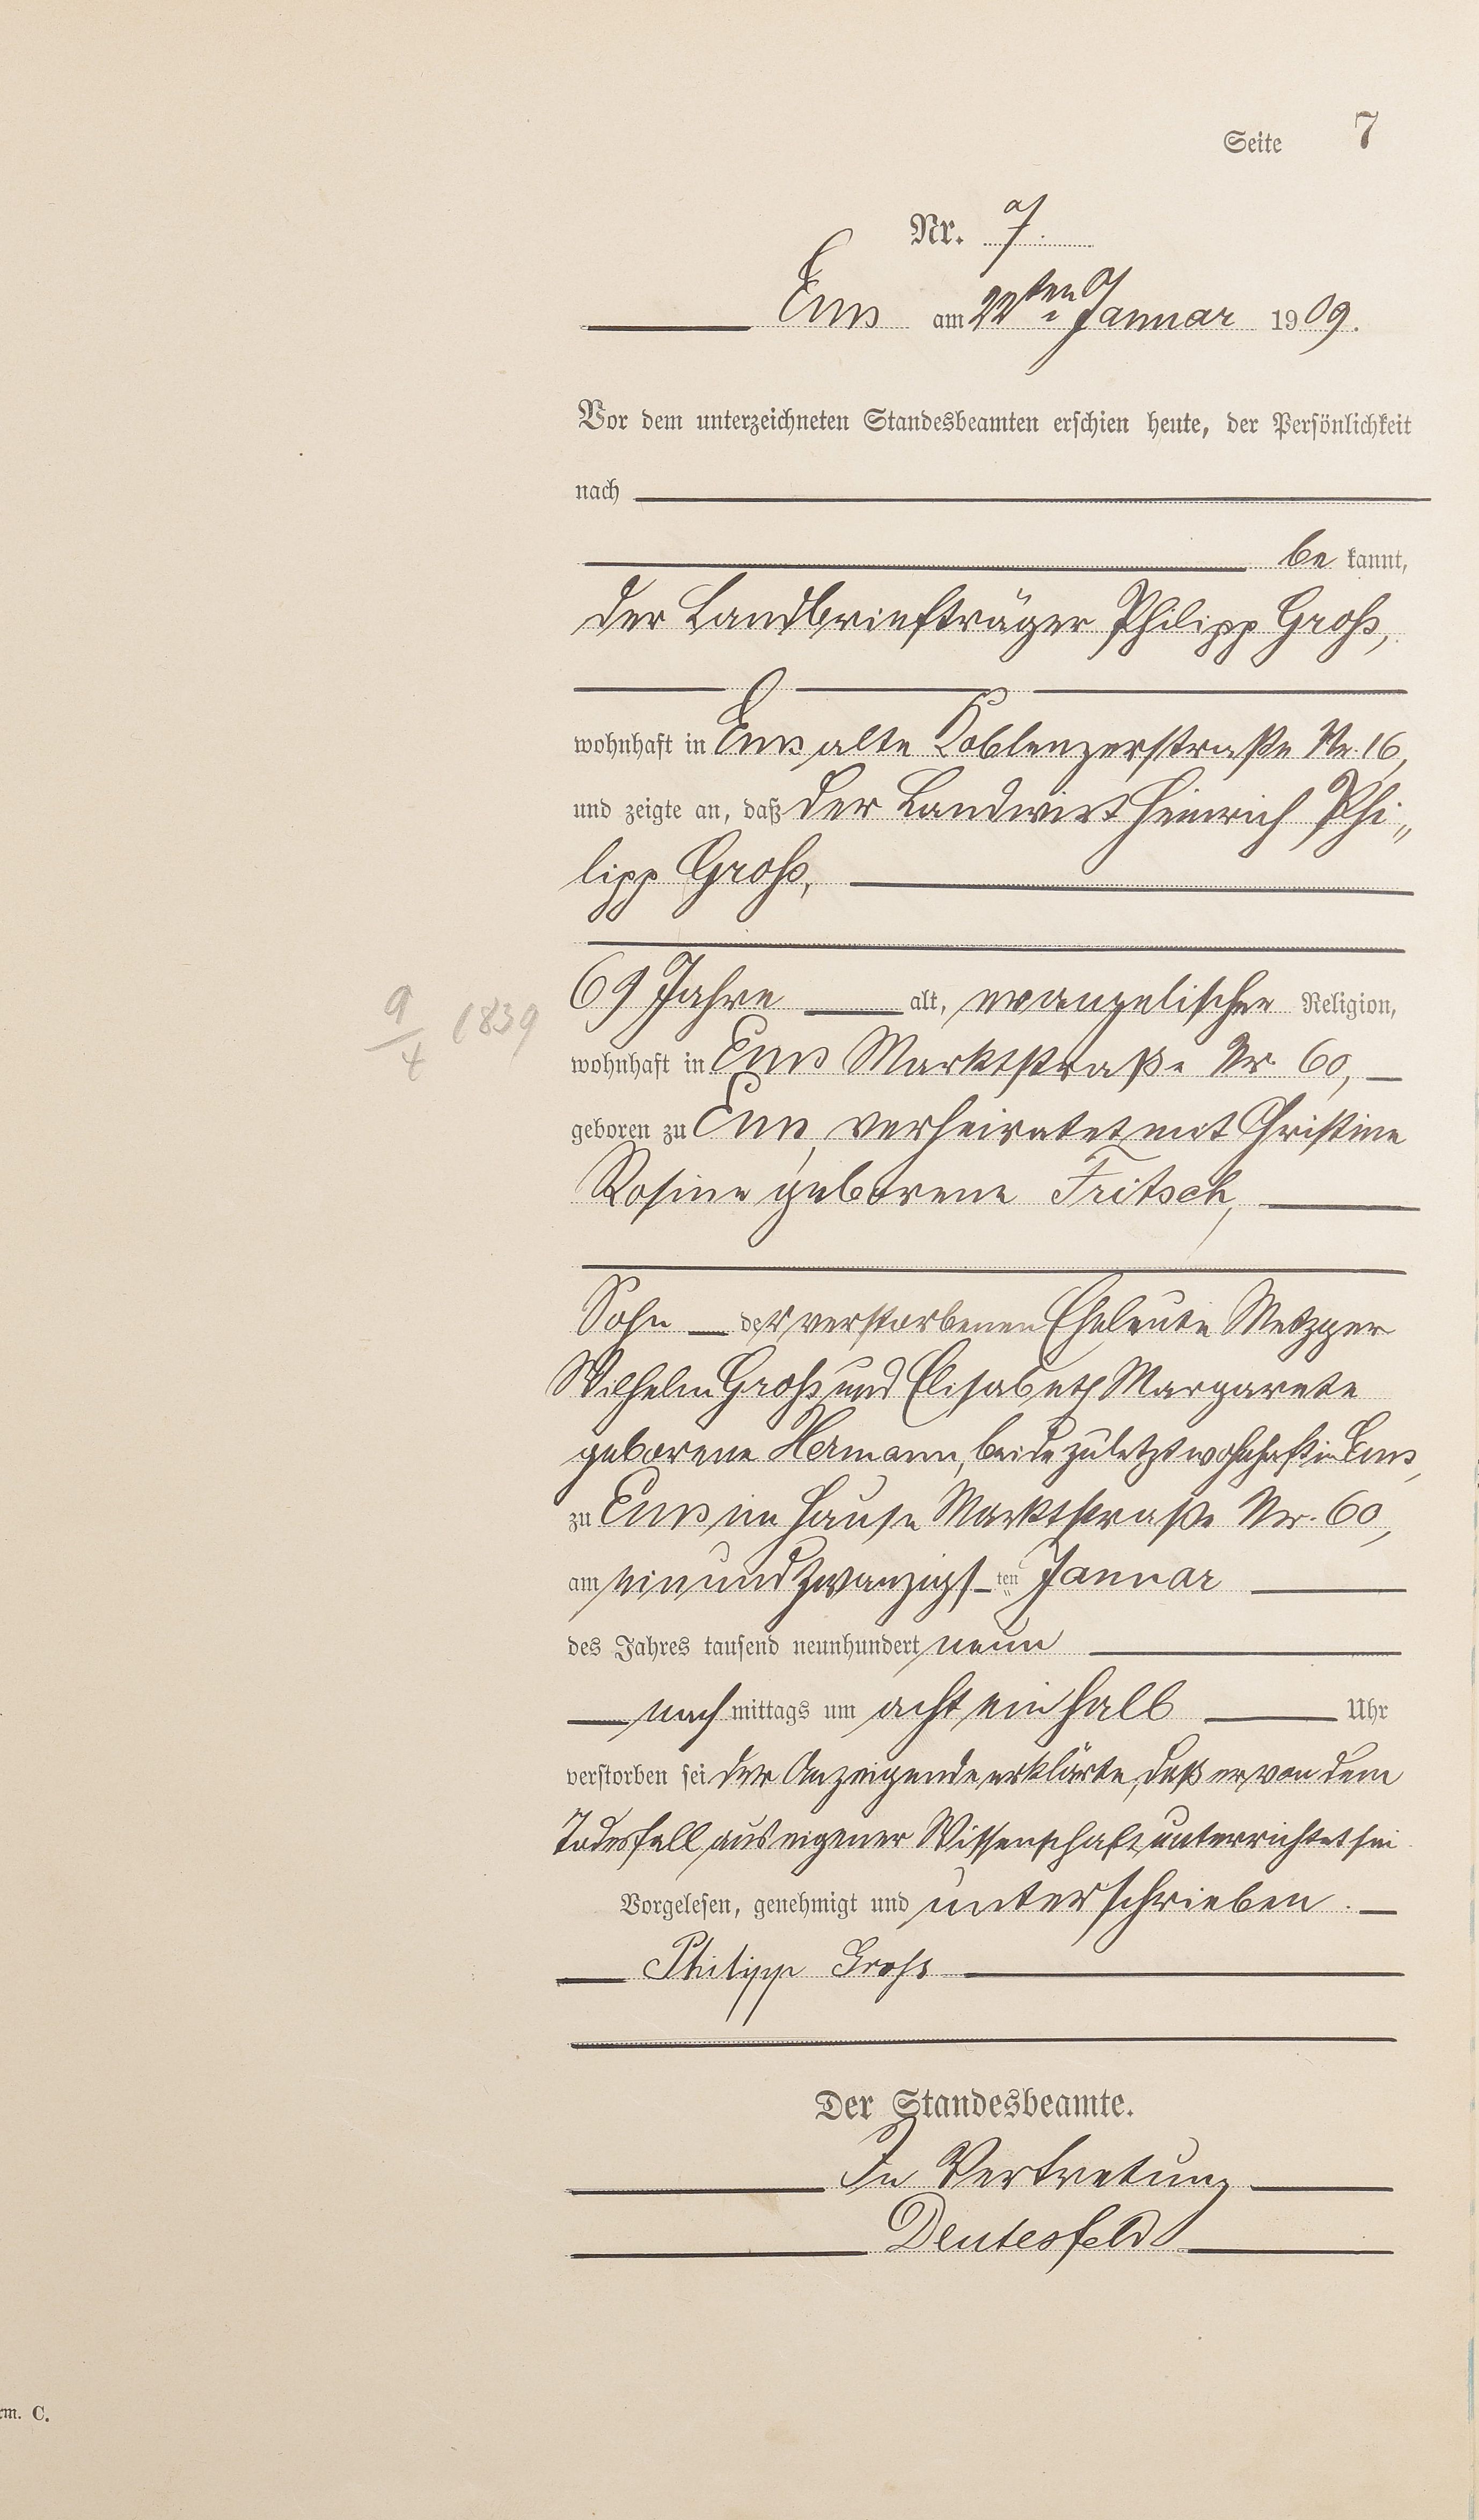 Seite 7
Nr. 7.
Ems am 22ten Januar 1909.
Vor dem unterzeichneten Standesbeamten erschien heute, der Persönlichkeit
nach
be kannt,
der Landbriefträger Philipp Groß,
wohnhaft in Ems alte Coblenzerstraße Nr. 16,
und zeigte an, daß der Landwirt Heinrich Phi„
lipp Groß,
69 Jahre alt, evangelischer Religion,
9/4 1839
wohnhaft in Ems Marktstraße Nr. 60,
geboren zu Ems, verheiratet mit Christine
Rosine geborene Fritsch,
Sohn der verstorbenen Eheleute Metzger
Wilhelm Groß und Elisabeth Margarete
geborene Hermann, beide zuletzt wohnhaft in Ems,
zu Ems im Hause Marktstraße Nr. 60,
am einundzwanzigs ten Januar
des Jahres tausend neunhundert neun
nach mittags um acht ein halb Uhr
verstorben sei der Anzeigende erklärte, daß er von dem
Todesfall aus eigener Wissenschaft unterrichtet sei
Vorgelesen, genehmigt und unterschrieben.
Philipp Groß
Der Standesbeamte.
In Vertretung
Deutesfeld
rm. C.